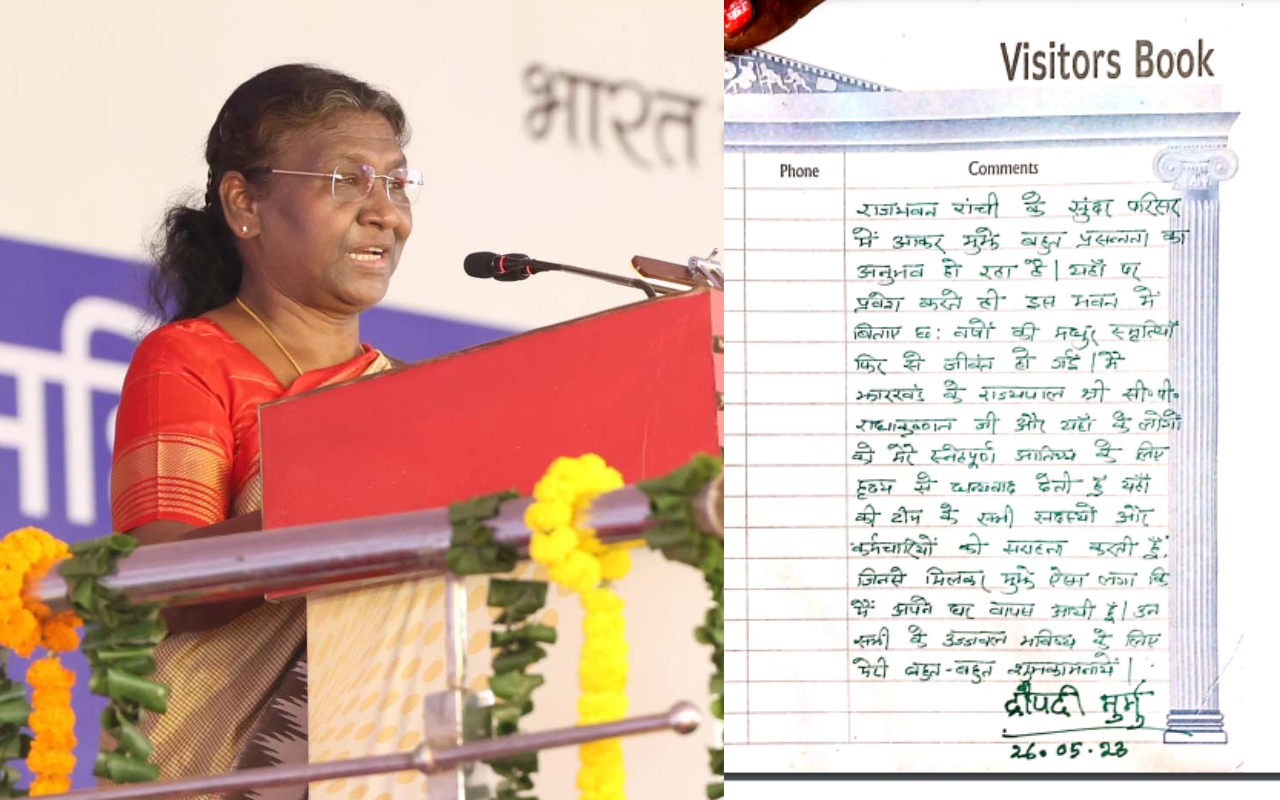 भारत
Visitors Book
Phone
Comments
राजभवन रांची के सुंदर परिसर
में आकर मुझे बहुत प्रसन्नता का
अनुभव हो रहा है। यहाँ पर
प्रवेश करते ही इस भवन में
बिताए छ: वर्षों की मधुर स्मृतियाँ
फिर से जीवंत हो गई। मैं
झारखंड के राज्यपाल श्री सी॰पी॰
राधाकृष्णन जी और यहाँ के लोगों
को मेरे स्नेहपूर्ण आतिथ्य के लिए
हृदय से धन्यवाद देती हूँ यहाँ
की टीम के सभी सदस्यों और
कर्मचारियों की सराहना करती हूँ,
जिनसे मिलकर मुझे ऐसा लगा कि
मैं अपने घर वापस आयी हूं। उन
सभी के उज्जवल भविष्य के लिए
मेरी बहुत-बहुत शुभकामनायें।
द्रौपदी मुर्मु
26.05.23